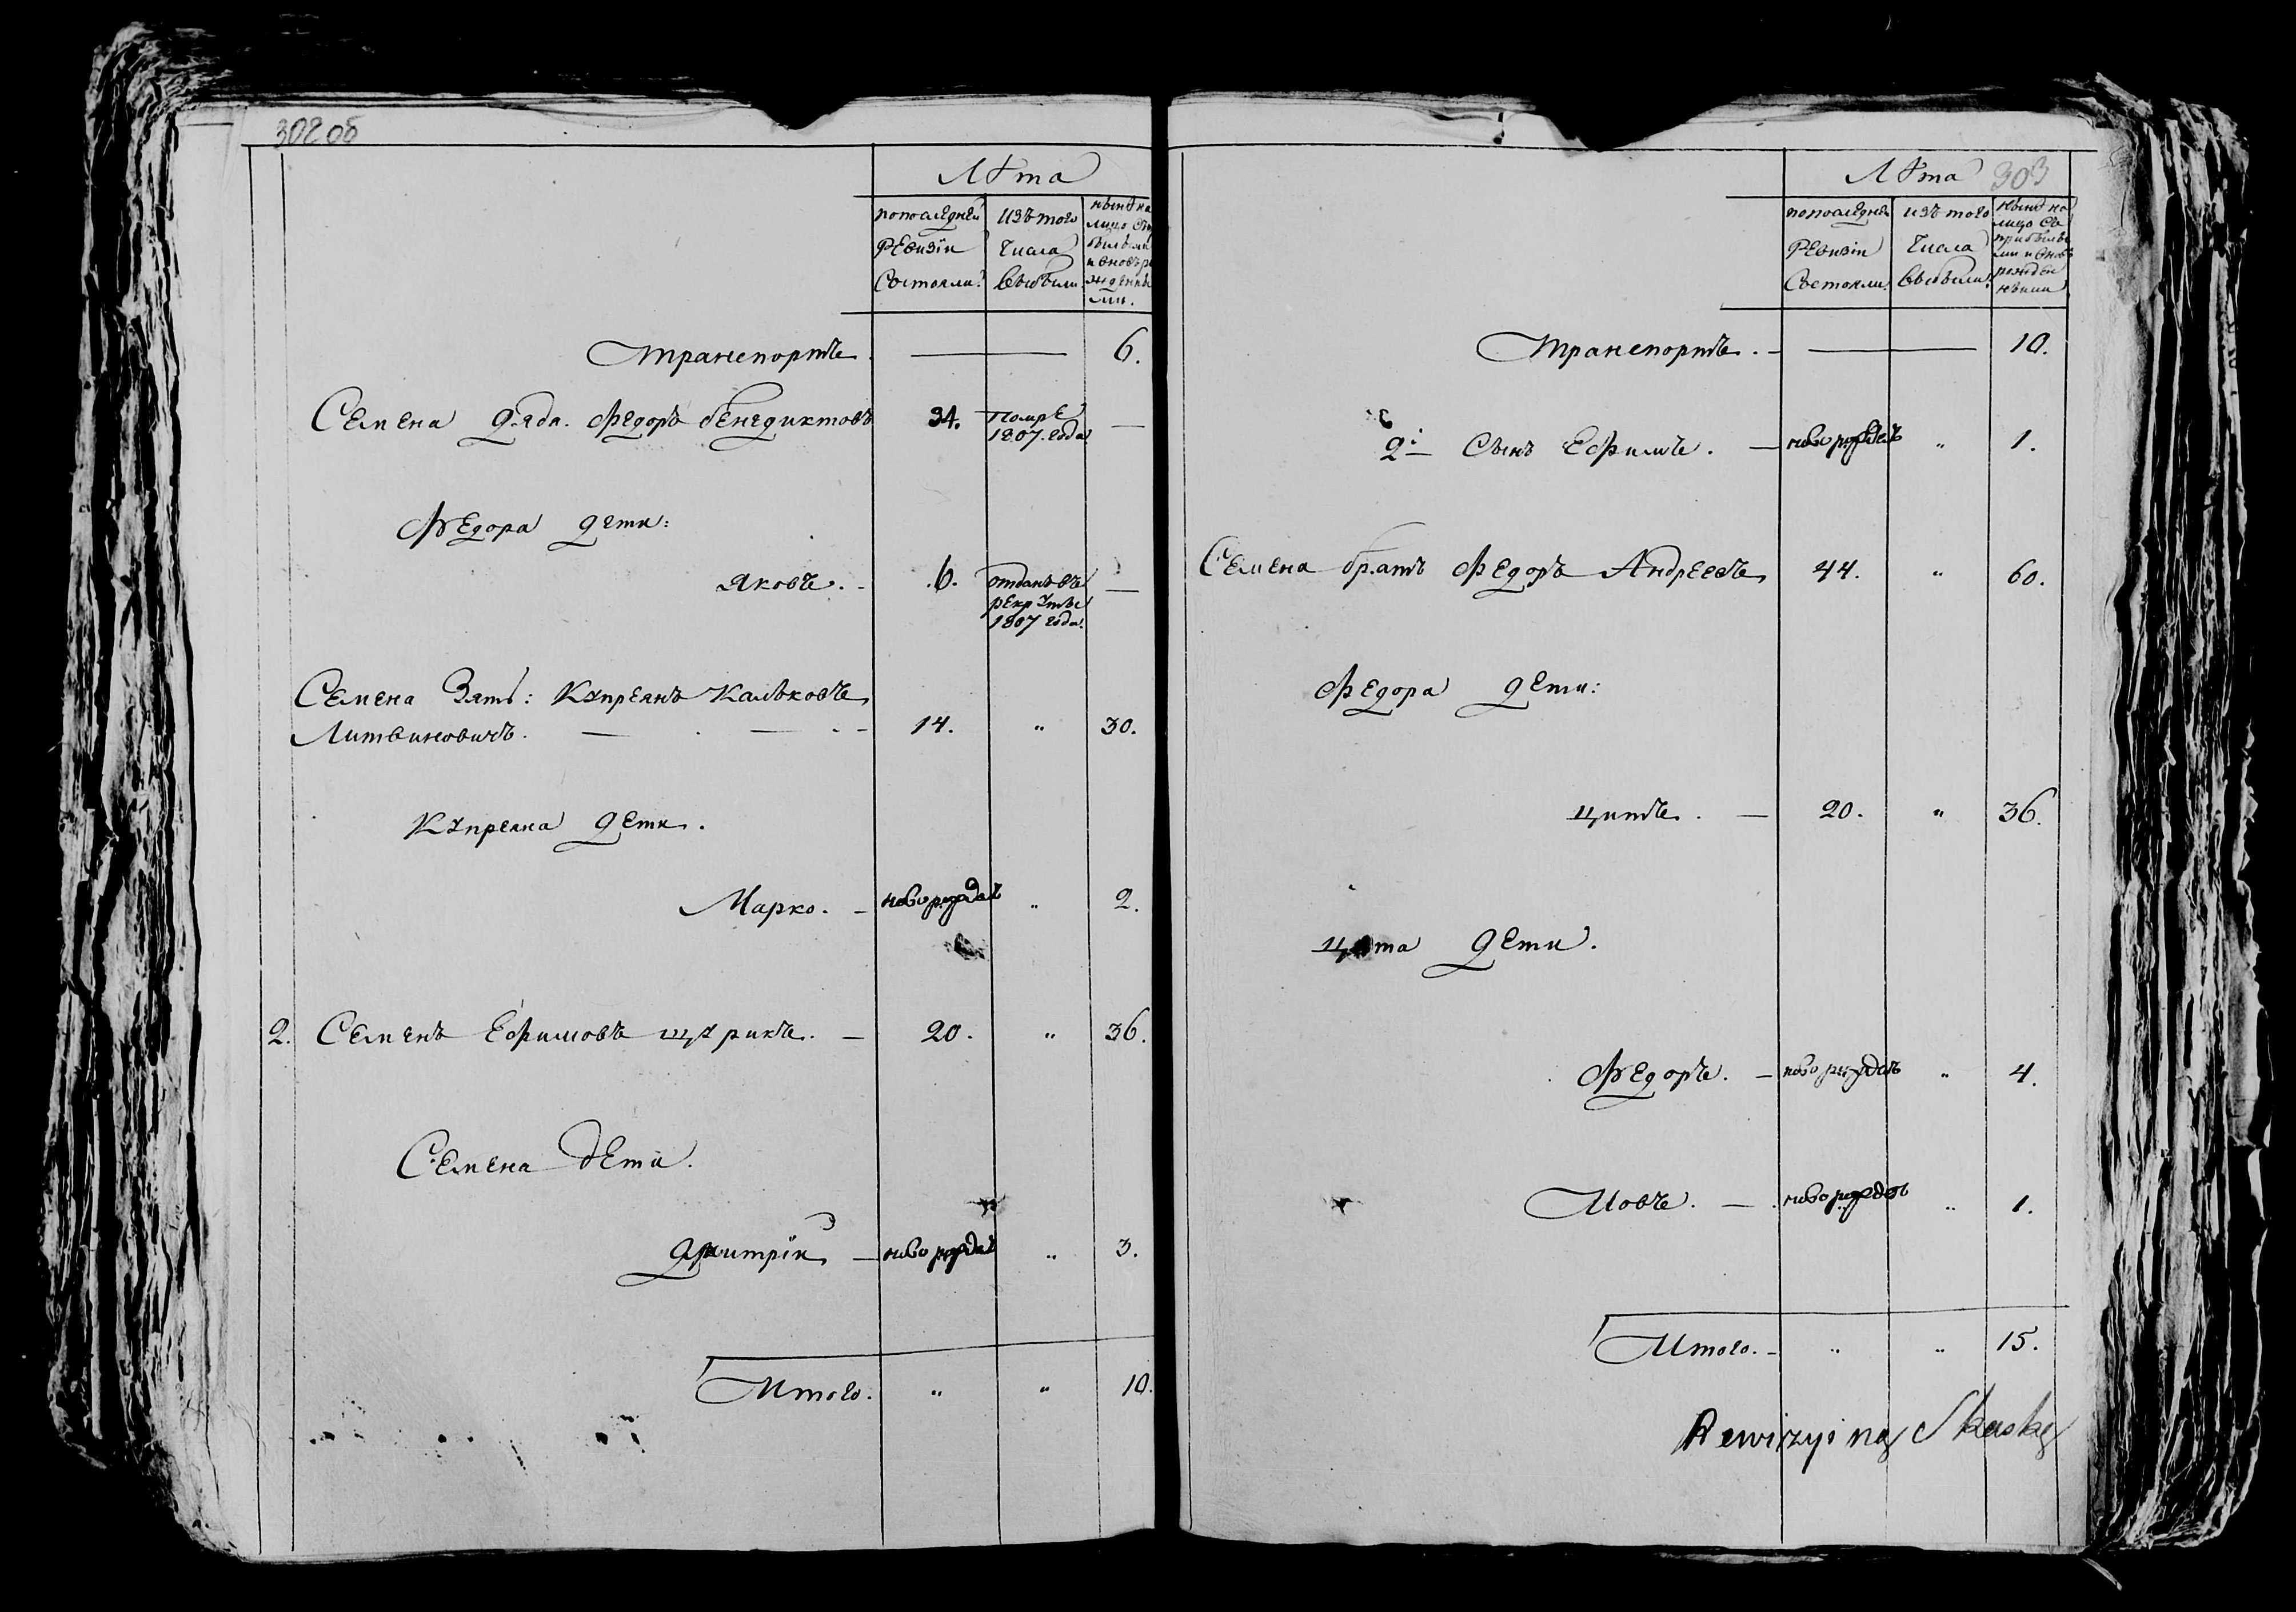 302 об
Лѣта
попоследней ревизiи состояли
изъ того числа выбыли
Транспортъ. — 6.
Семена дядя. Федоръ бенедиктовъ 34. помре 1807. года —
Федора дети:
Яковъ. - 6. отданъ въ рекруты 1807 года. —
Семена Зять: Купреянъ Кальковъ
Литвиновичъ. — . — . - 14. " 30.
Купреяна дети.
Марко. - новорожден " 2.
2. Семенъ Ефимовъ щурикъ. — 20. " 36.
Семена дети.
Дмитрiй — новорожден " 3.
Итого. " " 10.
Лѣта 303
попоследней ревизiи состояли
изъ того числа выбыли
нынѣ на лицо съ прибылыми и вновь рожденными
Транспортъ. - — 10.
2й Сынъ Ефимъ. — новорожденъ " 1.
Семена братъ Федоръ Андреевъ 44. " 60.
Федора дети:
цитъ. — 20. " 36.
цита дети.
Федоръ. — новорожденъ " 4.
Иовъ. — новорожденъ " 1.
Итого. - " " 15.
Rewizyina Skaska